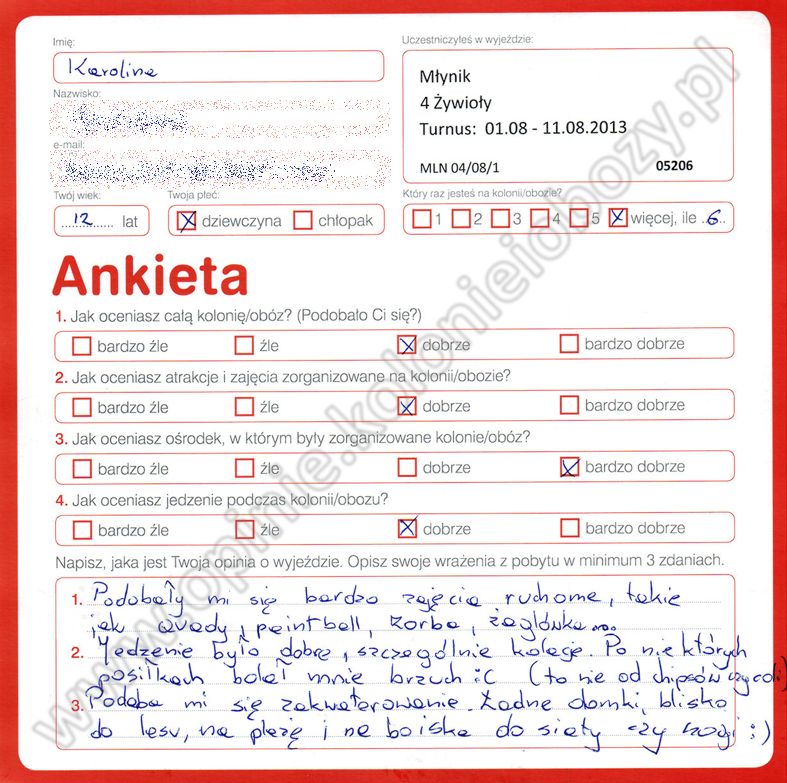 Imię:
Karolina
Nazwisko:
e-mail:
Twój wiek:
12 lat
Twoja płeć:
dziewczyna chłopak
Uczestniczyłeś w wyjeździe:
Młynik
4 Żywioły
Turnus: 01.08 - 11.08.2013
MLN 04/08/1 05206
Który raz jesteś na kolonii/obozie?
1 2 3 4 5 więcej, ile 6
Ankieta
1. Jak oceniasz całą kolonię/obóz? (Podobało Ci się?)
bardzo źle źle dobrze bardzo dobrze
2. Jak oceniasz atrakcje i zajęcia zorganizowane na kolonii/obozie?
bardzo źle źle dobrze bardzo dobrze
3. Jak oceniasz ośrodek, w którym były zorganizowane kolonie/obóz?
bardzo źle źle dobrze bardzo dobrze
4. Jak oceniasz jedzenie podczas kolonii/obozu?
bardzo źle źle dobrze bardzo dobrze
Napisz, jaka jest Twoja opinia o wyjeździe. Opisz swoje wrażenia z pobytu w minimum 3 zdaniach.
1. Podobały mi się bardzo zajęcia ruchome, takie
jak quady, paintball, zorba, żaglówka...
2. Jedzenie było dobre, szczególnie kolacje. Po niektórych
posiłkach bolał mnie brzuch :C (to nie od chipsów czy coli)
3. Podoba mi się zakwaterowanie. Ładne domki, blisko
do lasu, na plażę i na boiska do siaty czy nogi :)
www.opinie.kolonieiobozy.pl